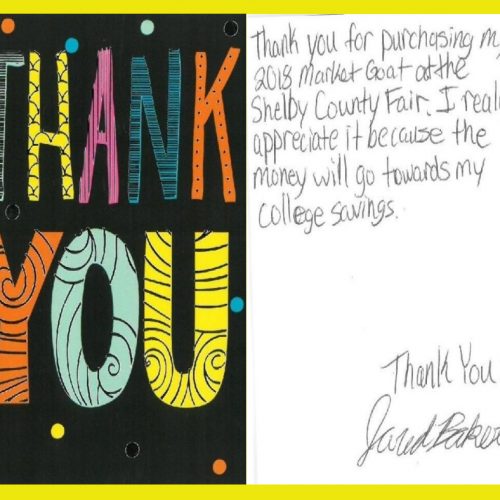 THANK
YOU
Thank you for purchasing my
2018 Market Goat at the
Shelby County Fair. I really
appreciate it because the
money will go towards my
college savings.
Thank You
Jared Baker